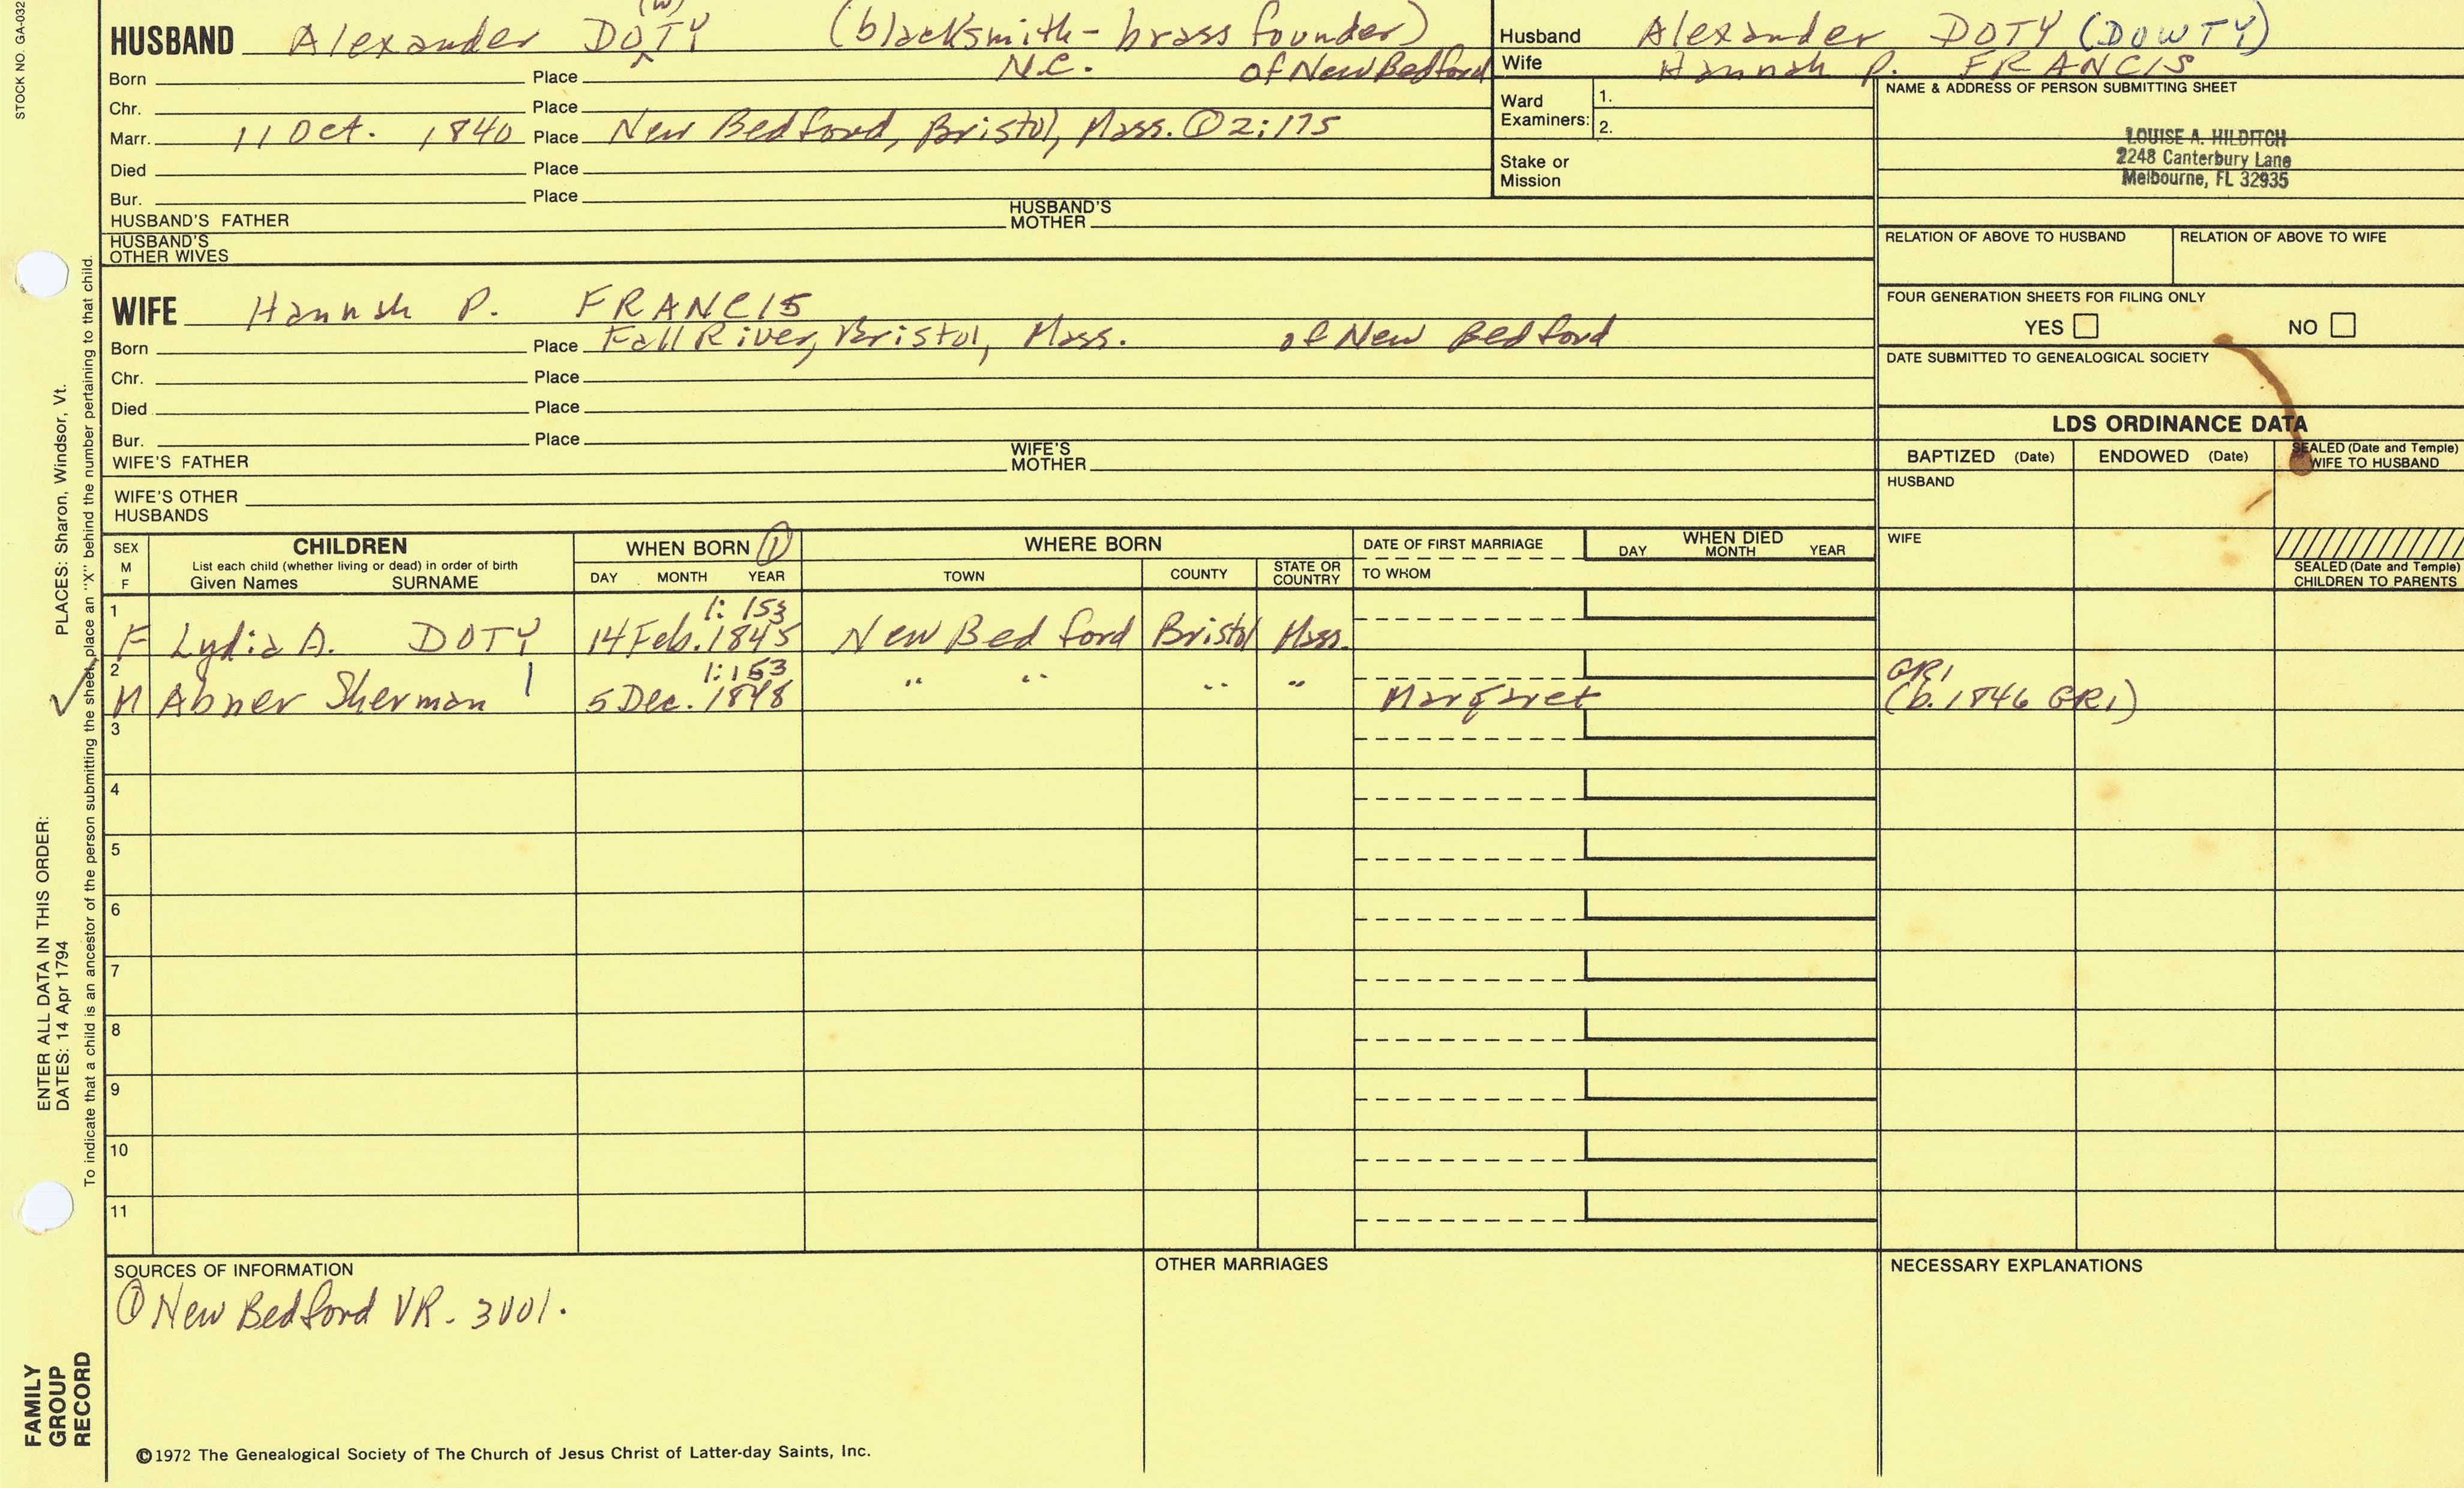 STOCK NO. GA-032
(W)
HUSBAND Alexander DOTY (blacksmith - brass founder)
Born Place N.C. of New Bedford
Chr. Place
Marr. 11 Oct. 1840 Place New Bedford, Bristol, Mass. ① 2:175
Died Place
Bur. Place
HUSBAND'S FATHER HUSBAND'S MOTHER
HUSBAND'S OTHER WIVES
Husband Alexander DOTY (DOWTY)
Wife Hannah P. FRANCIS
Ward Examiners: 1.
2.
Stake or Mission
NAME & ADDRESS OF PERSON SUBMITTING SHEET
LOUISE A. HILDITCH
2248 Canterbury Lane
Melbourne, FL 32935
RELATION OF ABOVE TO HUSBAND RELATION OF ABOVE TO WIFE
FOUR GENERATION SHEETS FOR FILING ONLY
YES NO
DATE SUBMITTED TO GENEALOGICAL SOCIETY
WIFE Hannah P. FRANCIS
Born Place Fall River, Bristol, Mass. of New Bedford
Chr. Place
Died Place
Bur. Place
WIFE'S FATHER WIFE'S MOTHER
WIFE'S OTHER HUSBANDS
LDS ORDINANCE DATA
BAPTIZED (Date) ENDOWED (Date) SEALED (Date and Temple) WIFE TO HUSBAND
HUSBAND
WIFE
SEALED (Date and Temple) CHILDREN TO PARENTS
SEX M F
CHILDREN
List each child (whether living or dead) in order of birth
Given Names SURNAME
WHEN BORN ①
DAY MONTH YEAR
WHERE BORN
TOWN COUNTY STATE OR COUNTRY
DATE OF FIRST MARRIAGE
TO WHOM
WHEN DIED
DAY MONTH YEAR
1 1:153
F Lydia A. DOTY 14 Feb. 1845 New Bedford Bristol Mass.
2 1:153 GR1
✓ M Abner Sherman " 5 Dec. 1848 " " " " Margaret (b. 1846 GR1)
3
4
5
6
7
8
9
10
11
SOURCES OF INFORMATION
① New Bedford VR - 3V01.
OTHER MARRIAGES
NECESSARY EXPLANATIONS
©1972 The Genealogical Society of The Church of Jesus Christ of Latter-day Saints, Inc.
FAMILY GROUP RECORD
ENTER ALL DATA IN THIS ORDER:
DATES: 14 Apr 1794 PLACES: Sharon, Windsor, Vt.
To indicate that a child is an ancestor of the person submitting the sheet, place an "X" behind the number pertaining to that child.